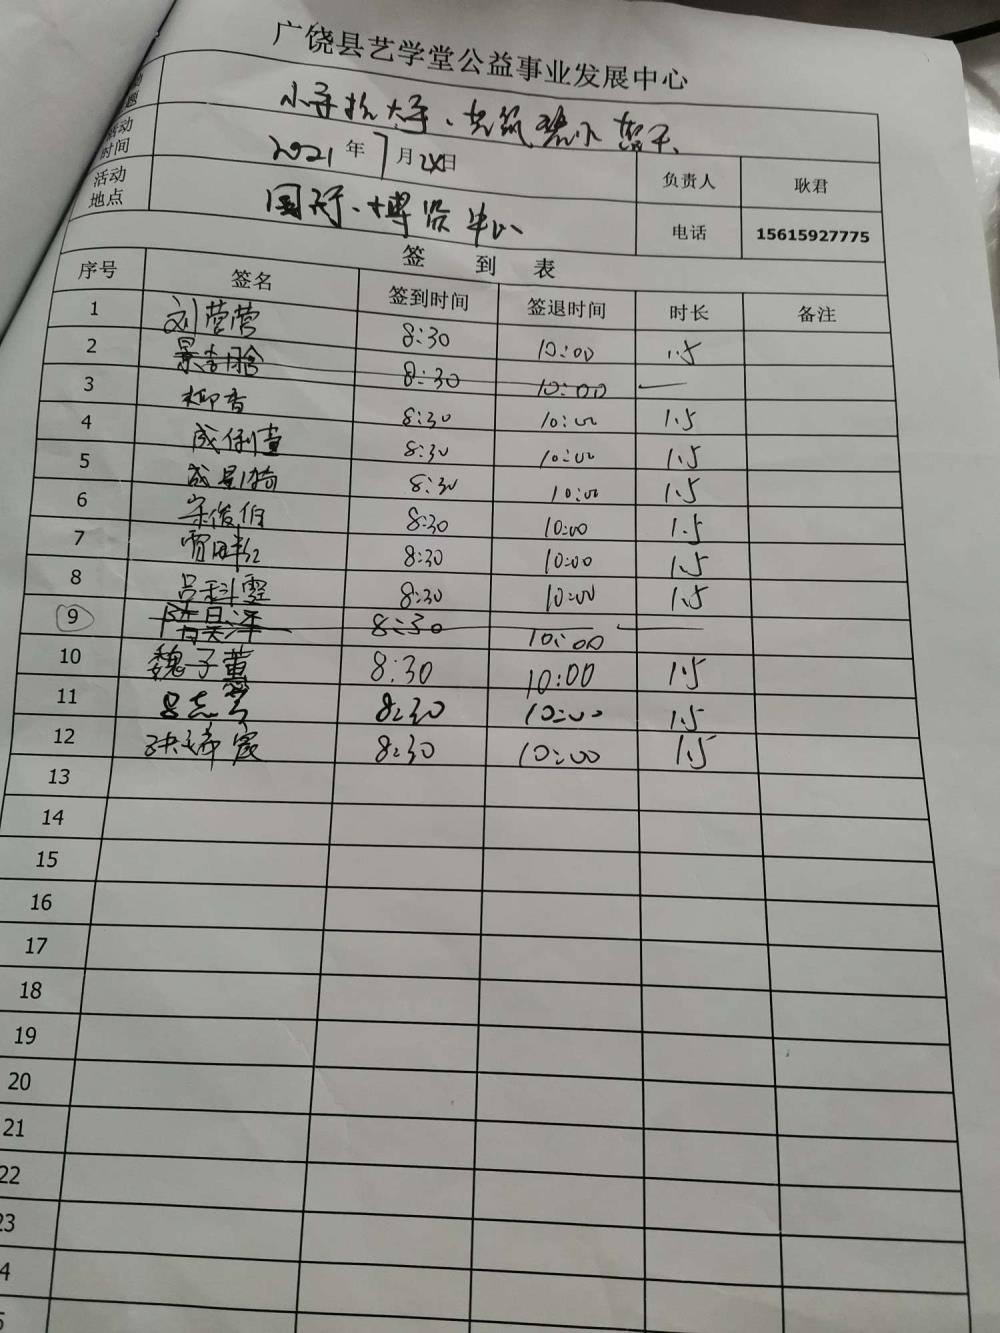 广饶县艺学堂公益事业发展中心
小手拉大手、共筑碧水蓝天
活动时间 2021年7月24日 负责人 耿君
活动地点 国际博览中心 电话 15615927775
签到表
序号 签名 签到时间 签退时间 时长 备注
1 刘莹莹 8:30 10:00 1.5
2 8:30 10:00 —
3 柳香 8:30 10:00 1.5
4 8:30 10:00 1.5
5 8:30 10:00 1.5
6 8:30 10:00 1.5
7 8:30 10:00 1.5
8 8:30 10:00 1.5
9 8:30 10:00 —
10 魏子萱 8:30 10:00 1.5
11 8:30 10:00 1.5
12 8:30 10:00 1.5
13
14
15
16
17
18
19
20
21
22
23
4
5